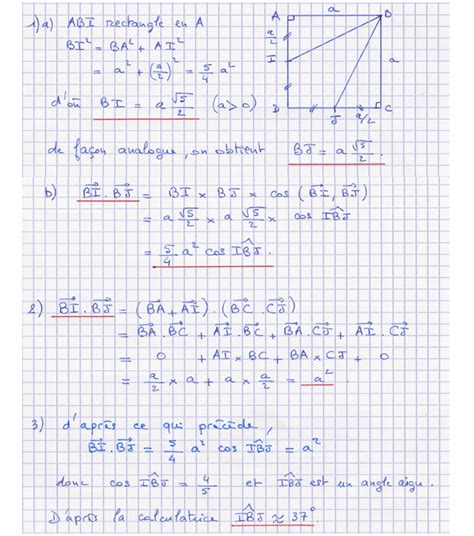 1) a) ABI rectangle en A
BI² = BA² + AI²
= a² + (a/2)² = 5/4 a²
d'où BI = a √5/2 (a>0)
A a B
a/2
I a
D J a/2 C
de façon analogue, on obtient BJ = a √5/2.
b) B⃗I⃗ . B⃗J⃗ = BI × BJ × cos (B⃗I⃗, B⃗J⃗)
= a √5/2 × a √5/2 × cos IB̂J
= 5/4 a² cos IB̂J.
2) B⃗I⃗ . B⃗J⃗ = (B⃗A⃗ + A⃗I⃗) . (B⃗C⃗ + C⃗J⃗)
= B⃗A⃗ . B⃗C⃗ + A⃗I⃗ . B⃗C⃗ + B⃗A⃗ . C⃗J⃗ + A⃗I⃗ . C⃗J⃗
= 0 + AI × BC + BA × CJ + 0
= a/2 × a + a × a/2 = a²
3) d'après ce qui précède,
B⃗I⃗ . B⃗J⃗ = 5/4 a² cos IB̂J = a²
donc cos IB̂J = 4/5 et IB̂J est un angle aigu.
D'après la calculatrice IB̂J ≈ 37°.